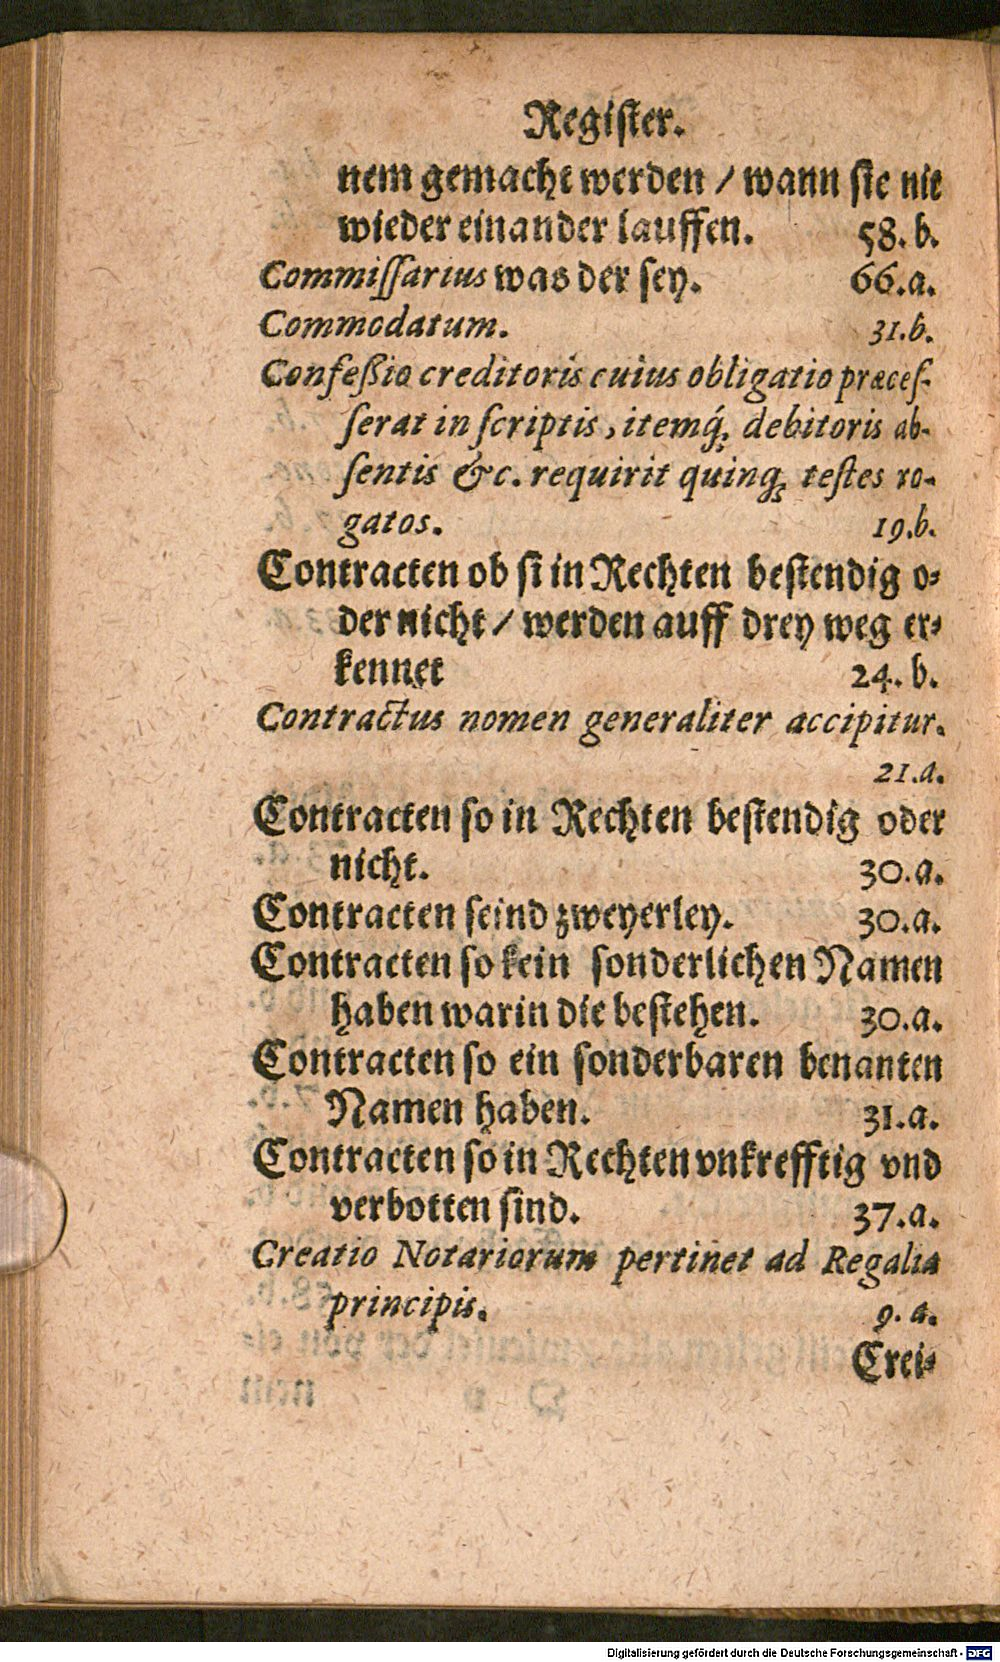 Regiſter.
nem gemacht werden / wann ſie nit
wieder einander lauffen. 58. b.
Commiſſarius was der ſey. 66.a.
Commodatum. 31.b.
Confeßio creditoris cuius obligatio præceſ-
ſerat in ſcriptis, itemq́; debitoris ab-
ſentis &c. requirit quinq; teſtes ro-
gatos. 19.b.
Contracten ob ſi in Rechten beſtendig o-
der nicht / werden auff drey weg er-
kennet 24. b.
Contractus nomen generaliter accipitur.
21.a.
Contracten ſo in Rechten beſtendig oder
nicht. 30.a.
Contracten ſeind zweyerley. 30.a.
Contracten ſo kein ſonderlichen Namen
haben warin die beſtehen. 30.a.
Contracten ſo ein ſonderbaren benanten
Namen haben. 31.a.
Contracten ſo in Rechten vnkrefftig vnd
verbotten ſind. 37.a.
Creatio Notariorum pertinet ad Regalia
principis. 9. a.
Crei-
Digitalisierung gefördert durch die Deutsche Forschungsgemeinschaft - DFG